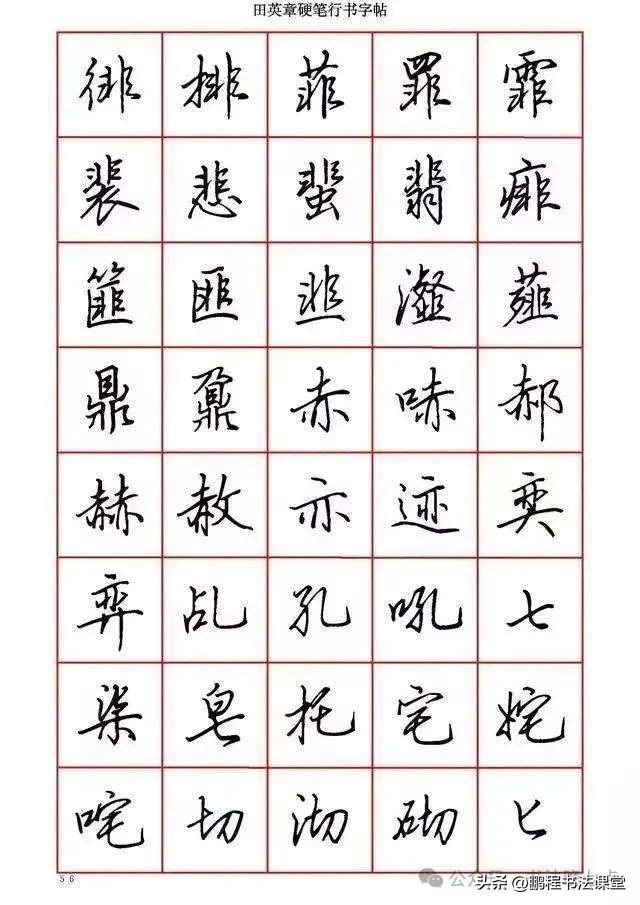 田英章硬笔行书字帖
徘排菲罪霏
裴悲蜚翡痱
篚匪韭瀣薤
鼎鼐赤哧郝
赫赦亦迹奕
弈乩孔吼七
柒皂托宅姹
咤切沏砌匕
56
公众号
头条 @鹏程书法课堂